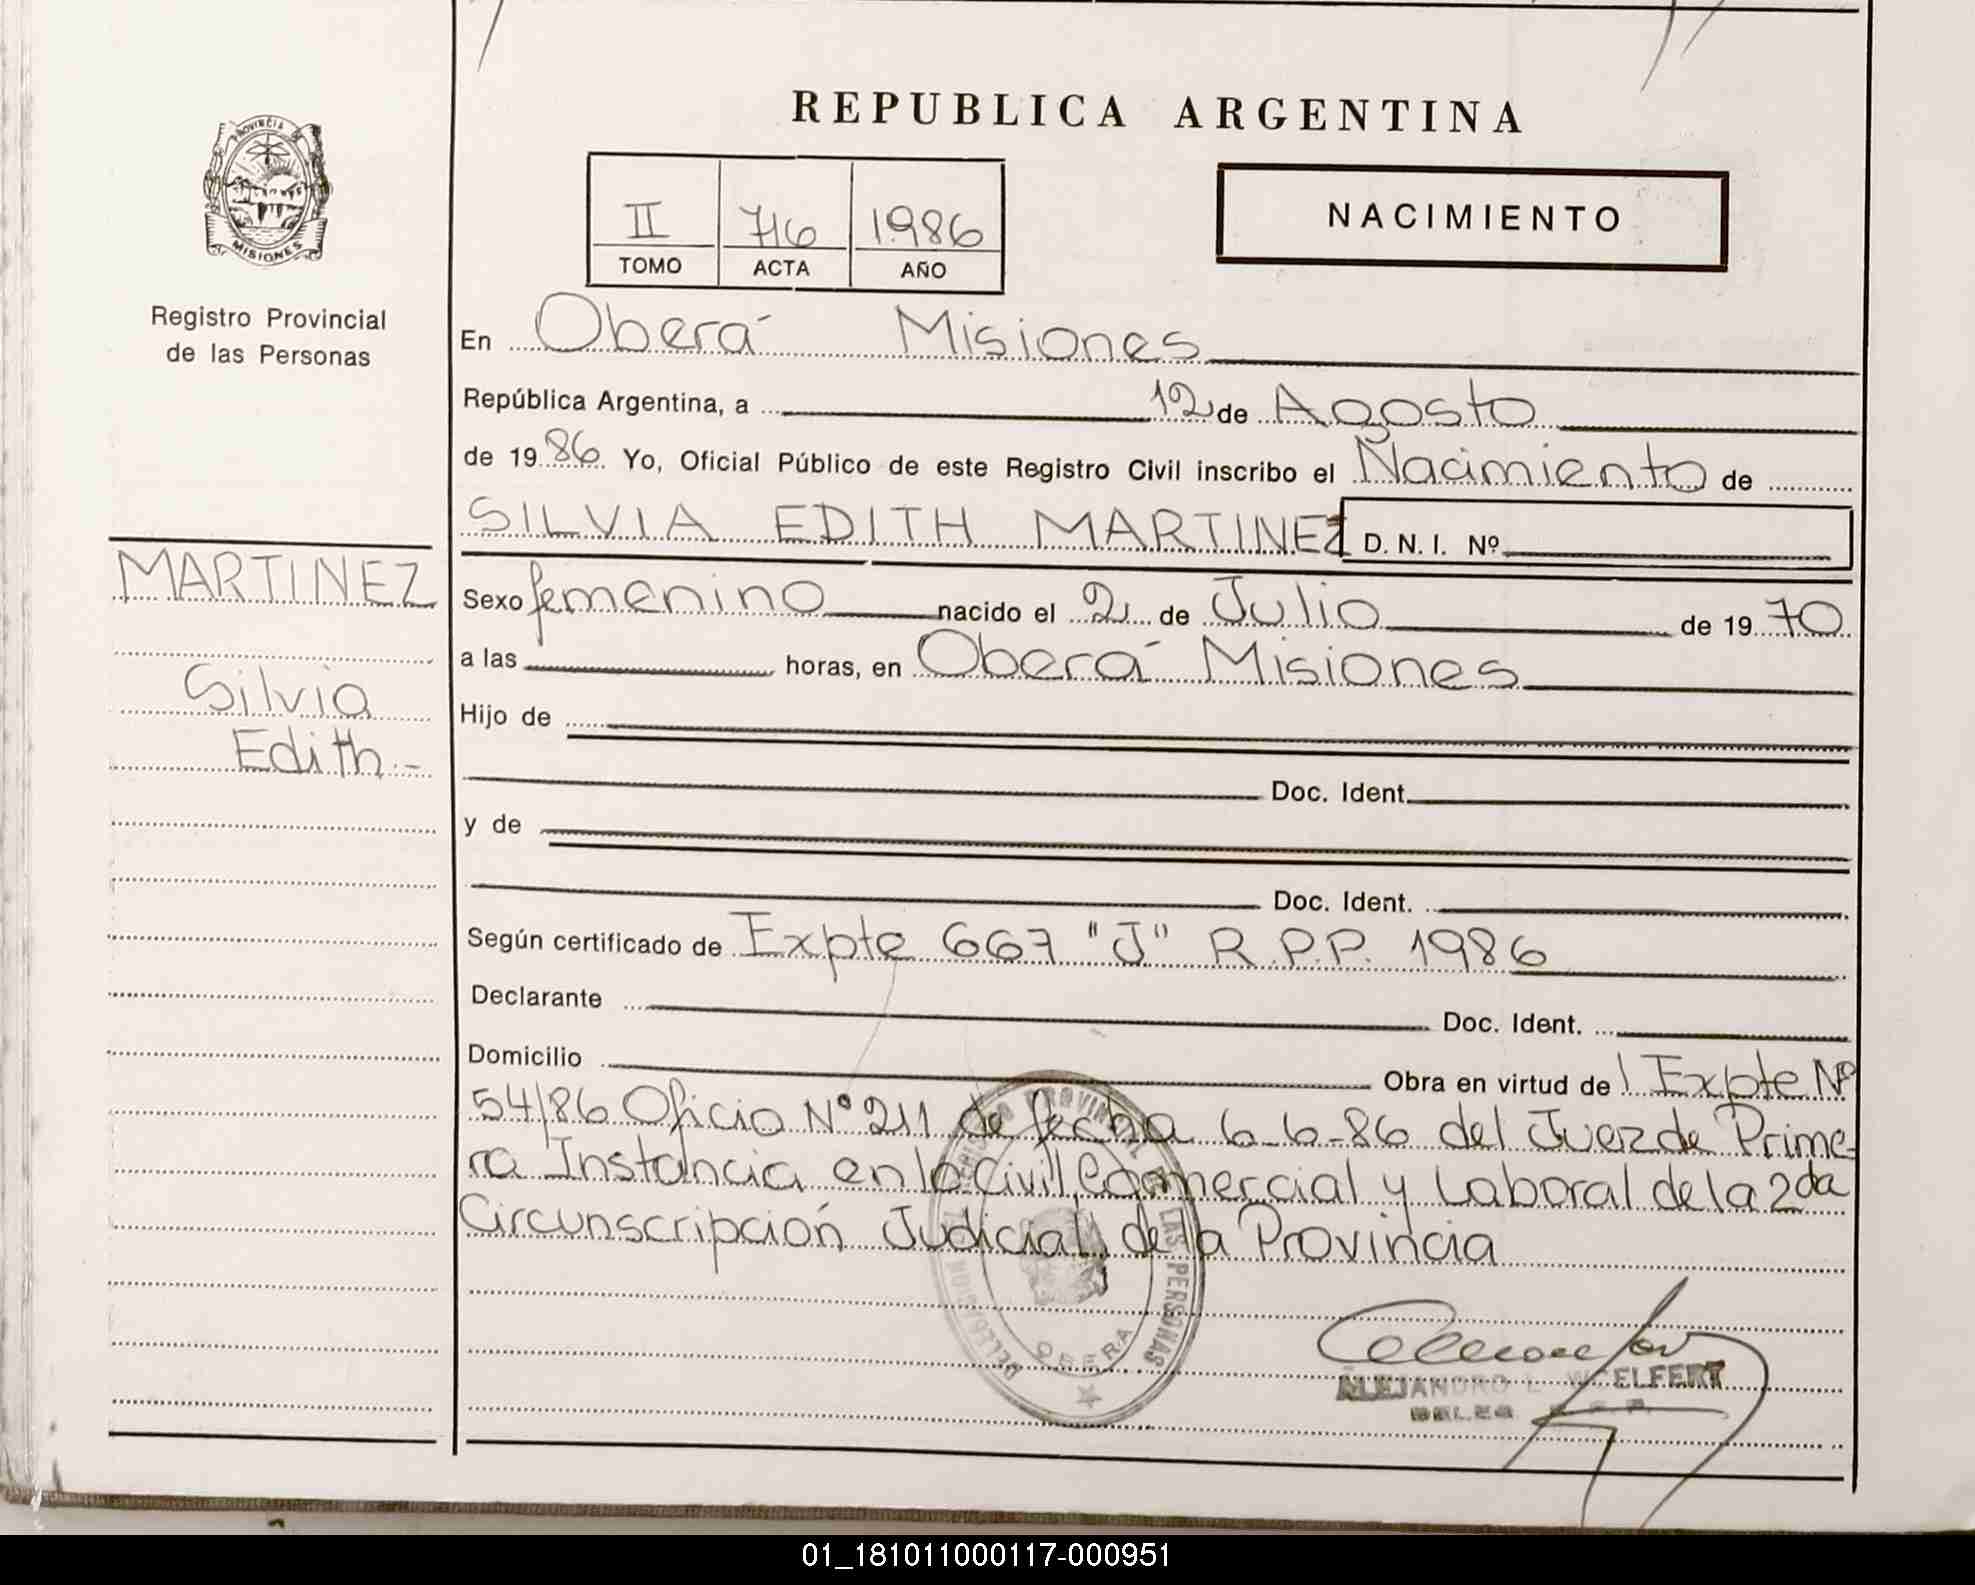 REPUBLICA ARGENTINA
PROVINCIA DE
MISIONES
II 716 1986
TOMO ACTA AÑO
NACIMIENTO
Registro Provincial
de las Personas
En Oberá Misiones
República Argentina, a 12 de Agosto
de 1986 Yo, Oficial Público de este Registro Civil inscribo el Nacimiento de
SILVIA EDITH MARTINEZ D. N. I. Nº
MARTINEZ
Silvia
Edith.-
Sexo femenino nacido el 2 de Julio de 1970
a las horas, en Oberá Misiones
Hijo de
Doc. Ident.
y de
Doc. Ident.
Según certificado de Expte 667 "J" R.P.P. 1986
Declarante Doc. Ident.
Domicilio Obra en virtud de l Expte Nº
54/86 Oficio N° 211 de fecha 6-6-86 del Juez de Prime-
ra Instancia en lo Civil, Comercial y Laboral de la 2da
Circunscripción Judicial de la Provincia
REGISTRO PROVINCIAL DE LAS PERSONAS
DELEGACION
OBERA
ALEJANDRO L. WOELFERT
01_181011000117-000951